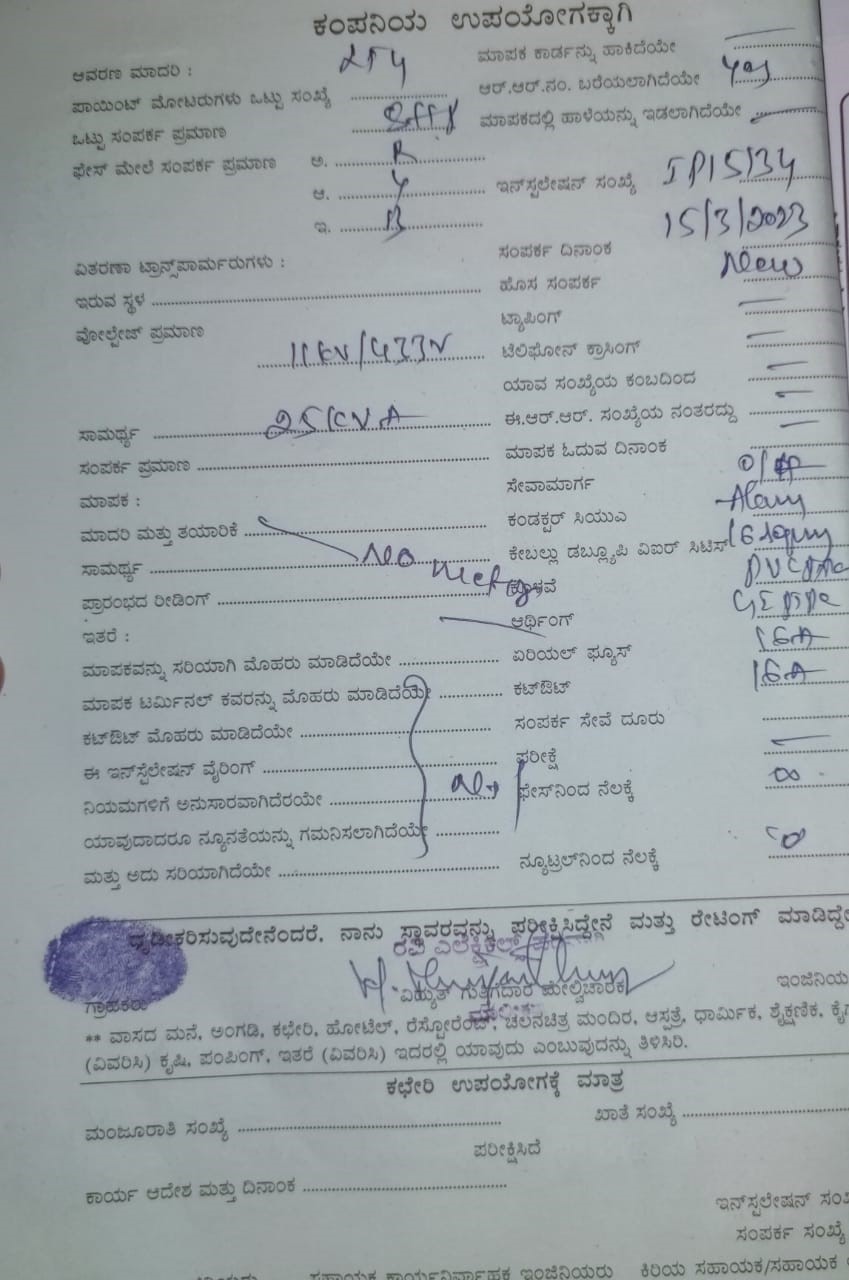 ಕಂಪನಿಯ ಉಪಯೋಗಕ್ಕಾಗಿ
ಆವರಣ ಮಾದರಿ :
ಮಾಪಕ ಕಾರ್ಡನ್ನು ಹಾಕಿದೆಯೇ
ಪಾಯಿಂಟ್ ಮೋಟರುಗಳು ಒಟ್ಟು ಸಂಖ್ಯೆ
ಆರ್.ಆರ್.ನಂ. ಬರೆಯಲಾಗಿದೆಯೇ Yes
ಒಟ್ಟು ಸಂಪರ್ಕ ಪ್ರಮಾಣ
ಮಾಪಕದಲ್ಲಿ ಹಾಳೆಯನ್ನು ಇಡಲಾಗಿದೆಯೇ
ಫೇಸ್ ಮೇಲೆ ಸಂಪರ್ಕ ಪ್ರಮಾಣ ಅ. R
ಆ. Y
ಇನ್‌ಸ್ಪಲೇಷನ್ ಸಂಖ್ಯೆ IP15/34
ಇ. B
15/3/2023
ಸಂಪರ್ಕ ದಿನಾಂಕ
ವಿತರಣಾ ಟ್ರಾನ್ಸ್‌ಪಾರ್ಮರುಗಳು :
ಹೊಸ ಸಂಪರ್ಕ New
ಇರುವ ಸ್ಥಳ
ಟ್ಯಾಪಿಂಗ್
ವೋಲ್ಟೇಜ್ ಪ್ರಮಾಣ 11KV/433V
ಟೆಲಿಫೋನ್ ಕ್ರಾಸಿಂಗ್
ಯಾವ ಸಂಖ್ಯೆಯ ಕಂಬದಿಂದ
ಸಾಮರ್ಥ್ಯ 25KVA
ಈ.ಆರ್.ಆರ್. ಸಂಖ್ಯೆಯ ನಂತರದ್ದು
ಸಂಪರ್ಕ ಪ್ರಮಾಣ
ಮಾಪಕ ಓದುವ ದಿನಾಂಕ
ಮಾಪಕ :
ಸೇವಾಮಾರ್ಗ
ಮಾದರಿ ಮತ್ತು ತಯಾರಿಕೆ
ಕಂಡಕ್ಟರ್ ಸಿಯುಎ
ಸಾಮರ್ಥ್ಯ No
ಕೇಬಲ್ಲು ಡಬ್ಲ್ಯೂಪಿ ವಿಐರ್ ಸಿಟಿಸ್
ಪ್ರಾರಂಭದ ರೀಡಿಂಗ್
ಇತರೆ :
ಅರ್ಥಿಂಗ್
ಮಾಪಕವನ್ನು ಸರಿಯಾಗಿ ಮೊಹರು ಮಾಡಿದೆಯೇ
ಏರಿಯಲ್ ಫ್ಯೂಸ್ 16A
ಮಾಪಕ ಟರ್ಮಿನಲ್ ಕವರನ್ನು ಮೊಹರು ಮಾಡಿದೆಯೇ
ಕಟ್‌ಔಟ್ 16A
ಕಟ್‌ಔಟ್ ಮೊಹರು ಮಾಡಿದೆಯೇ
ಸಂಪರ್ಕ ಸೇವೆ ದೂರು
ಈ ಇನ್‌ಸ್ಪೆಲೇಷನ್ ವೈರಿಂಗ್
ಪರೀಕ್ಷೆ
ನಿಯಮಗಳಿಗೆ ಅನುಸಾರವಾಗಿದೆರಯೇ
ಫೇಸ್‌ನಿಂದ ನೆಲಕ್ಕೆ ∞
ಯಾವುದಾದರೂ ನ್ಯೂನತೆಯನ್ನು ಗಮನಿಸಲಾಗಿದೆಯೇ
ಮತ್ತು ಅದು ಸರಿಯಾಗಿದೆಯೇ
ನ್ಯೂಟ್ರಲ್‌ನಿಂದ ನೆಲಕ್ಕೆ
ಧೃಡೀಕರಿಸುವುದೇನೆಂದರೆ, ನಾನು ಸ್ಥಾವರವನ್ನು ಪರೀಕ್ಷಿಸಿದ್ದೇನೆ ಮತ್ತು ರೇಟಿಂಗ್ ಮಾಡಿದ್ದೇ
ರವಿ ಎಲೆಕ್ಟ್ರಿಕಲ್ಸ್
ಗ್ರಾಹಕರು
ವಿದ್ಯುತ್ ಗುತ್ತಿಗೆದಾರ ಮೇಲ್ವಿಚಾರಕ
ಇಂಜಿನಿಯ
** ವಾಸದ ಮನೆ, ಅಂಗಡಿ, ಕಛೇರಿ, ಹೋಟೆಲ್, ರೆಸ್ಟೋರೆಂಟ್, ಚಲನಚಿತ್ರ ಮಂದಿರ, ಆಸ್ಪತ್ರೆ, ಧಾರ್ಮಿಕ, ಶೈಕ್ಷಣಿಕ, ಕೈಗ
(ವಿವರಿಸಿ) ಕೃಷಿ, ಪಂಪಿಂಗ್, ಇತರೆ (ವಿವರಿಸಿ) ಇದರಲ್ಲಿ ಯಾವುದು ಎಂಬುವುದನ್ನು ತಿಳಿಸಿರಿ.
ಕಛೇರಿ ಉಪಯೋಗಕ್ಕೆ ಮಾತ್ರ
ಮಂಜೂರಾತಿ ಸಂಖ್ಯೆ
ಖಾತೆ ಸಂಖ್ಯೆ
ಪರೀಕ್ಷಿಸಿದೆ
ಕಾರ್ಯ ಆದೇಶ ಮತ್ತು ದಿನಾಂಕ
ಇನ್‌ಸ್ಪಲೇಷನ್ ಸಂಖ
ಸಂಪರ್ಕ ಸಂಖ್ಯೆ
ಸಹಾಯಕ ಕಾರ್ಯನಿರ್ವಾಹಕ ಇಂಜಿನಿಯರು ಕಿರಿಯ ಸಹಾಯಕ/ಸಹಾಯಕ